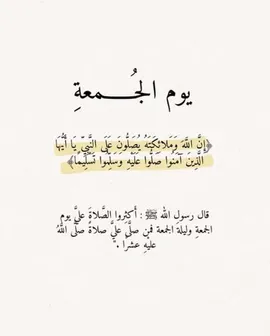 يوم الجُمعةِ
﴿إِنَّ اللَّهَ وَمَلَائِكَتَهُ يُصَلُّونَ عَلَى النَّبِيِّ يَا أَيُّهَا
الَّذِينَ آمَنُوا صَلُّوا عَلَيْهِ وَسَلِّمُوا تَسْلِيمًا﴾
قال رسول الله ﷺ : أَكثِروا الصَّلاةَ عليَّ يوم
الجمعةِ وليلةَ الجمعة فمن صلَّى عليَّ صلاةً صلَّى اللَّهُ
عليهِ عَشرًا .